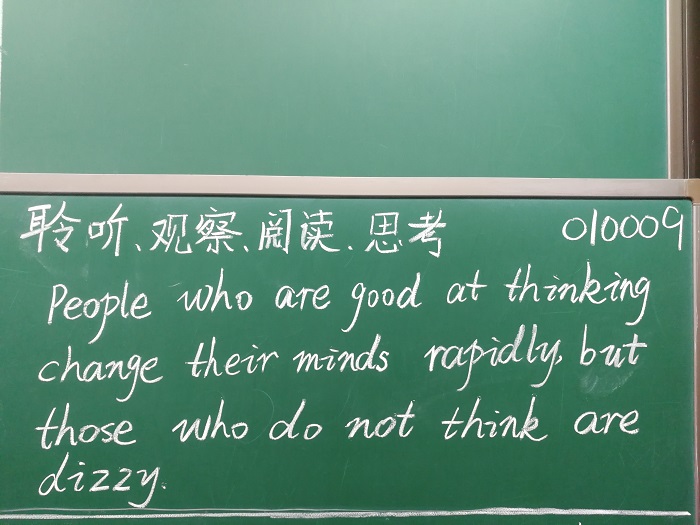 聆听、观察、阅读、思考 010009
People who are good at thinking
change their minds rapidly, but
those who do not think are
dizzy.